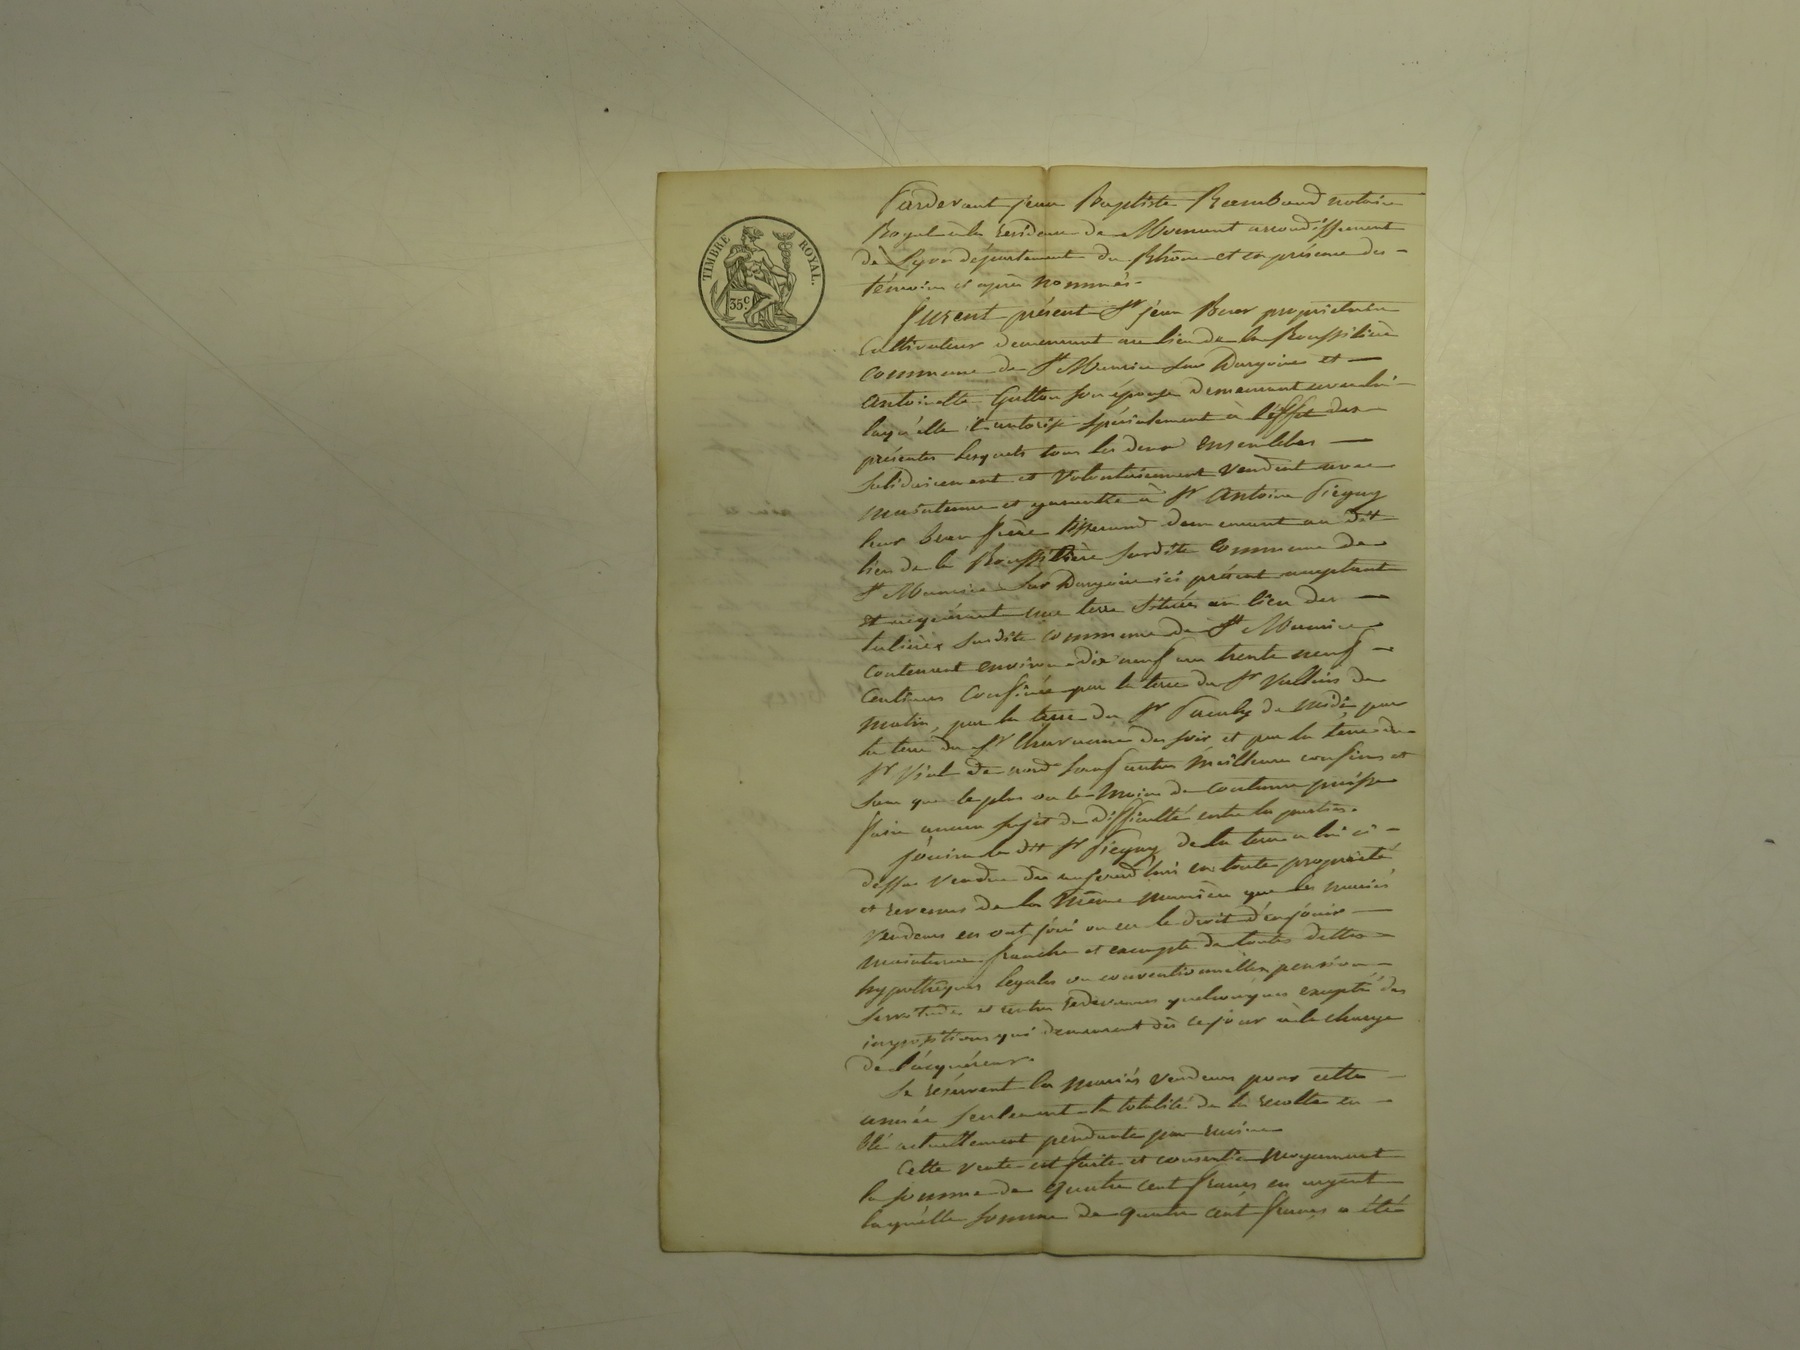 TIMBRE ROYAL.
35c.
Pardevant jean Baptiste Rambaud notaire
Royal à la residence de Mornant arrondissement
de Lyon département du Rhône et en présence des
témoins ci après nommés.
Furent présent Sr jean Buer propriétaire
Cultivateur demeurant au lieu de la Roussilière
commune de St Maurice sur Dargoire et
antoinette Gutton son épouse demeurant avec lui
laqu'elle il autorise spécialement à l'effet des
présentes lesquels tous les deux ensembles
solidairement et Volontairement vendent avec
maintenue et garantie à Sr antoine Piegay
leur beau frère tisserand demeurant au dit
lieu de la Roussilière susdite commune de
St Maurice sur Dargoire ici présent acceptant
et acquérant une terre située au lieu des
susdite commune de St Maurice
contenant environ dix neuf ares trente neuf
centiares confinée par la terre du Sr de
matin, par la terre du Sr de midi, par
la terre du Sr de soir et par la terre du
Sr Vial de nord sauf autres meilleurs confins et
sans que le plus ou le moins de contenue puisse
faire aucun sujet de difficulté entre les parties.
jouira le dit Sr Piegay de la terre a lui ci
dessus vendue dès aujourd'hui en toute propriété
et revenus de la même manière que les mariés
vendeurs en ont joui ou eu le droit d'en jouir
maintenue franche et exempte de toutes dettes
hypothèques legales ou conventionnelles, pension
servitudes et autres redevances quelconques excepté des
impositions qui demeurent dès ce jour à la charge
de l'acquéreur.
Se réservent les mariés vendeurs pour cette
année seulement la totalité de la recolte en
blé actuellement pendante par racine
Cette vente est faite et consentie moyennant
la somme de quatre cent francs en argent
laqu'elle somme de quatre cent francs a été